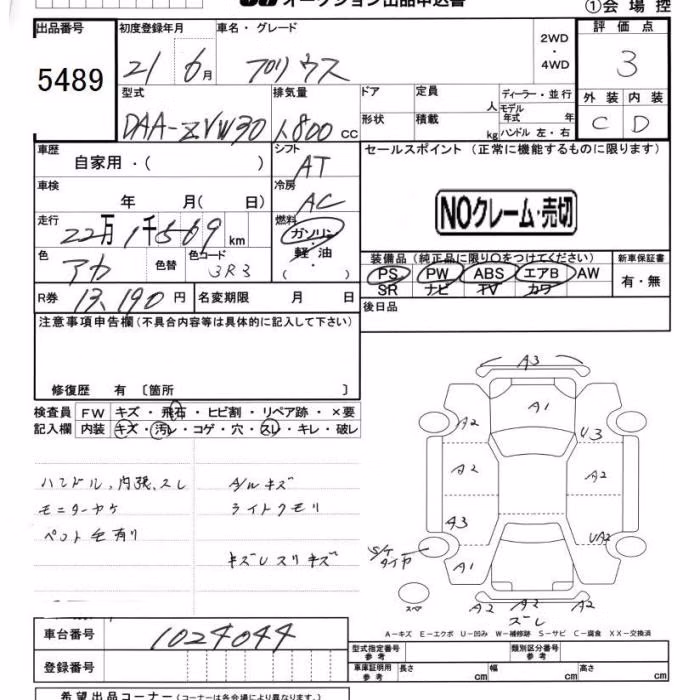 オークション出品申込書
①会場控
出品番号 初度登録年月 車名・グレード 2WD・4WD 評価点
5489 21年 6月 プリウス 3
型式 排気量 ドア 定員 人 ディーラー・並行 外装 内装
DAA-ZVW30 1,800cc 形状 積載 kg モデル年式 年 ハンドル 左・右 C D
車歴 自家用・( ) シフト AT セールスポイント (正常に機能するものに限ります)
車検 年 月( 日) 冷房 AC
NOクレーム・売切
走行 22万1千569km 燃料 ガソリン・軽油・( )
色 アカ 色替 色コード 3R3 装備品 (純正品に限り○をつけてください) 新車保証書
PS PW ABS エアB AW 有・無
SR ナビ TV カワ
R券 13,190円 名変期限 月 日 後日品
注意事項申告欄 (不具合内容等は具体的に記入して下さい)
修復歴 有 〔箇所 〕
検査員 FW キズ・飛石・ヒビ割・リペア跡・×要
記入欄 内装 キズ・汚レ・コゲ・穴・スレ・キレ・破レ
ハンドル,内張,スレ A/Wキズ
モニターヤケ ライトクモリ
ペット毛有り
キズレスリキズ
A3
A1
A2 U3
A2 A2
A3 UA2
S/Kタイヤ A1
スペア A2 A2 A2
ズレ
A－キズ E－エクボ U－凹み W－補修跡 S－サビ C－腐食 XX－交換済
車台番号 1024044
登録番号
型式指定番号 参考 類別区分番号 参考
車庫証明用 参考 長さ cm 幅 cm 高さ cm
希望出品コーナー (コーナーは各会場により異なります。)